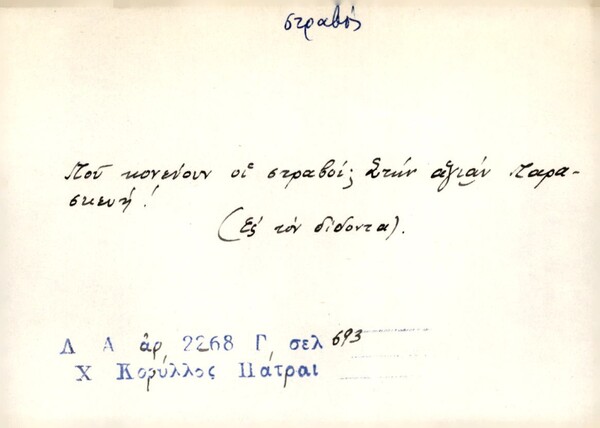 στραβός
Ποῦ κονεύουν οἱ στραβοί; Στὴν ἁγιὰν Παρα-
σκευή!
(Εἰς τὸν δίδοντα).
Λ Α ἀρ, 2268 Γ, σελ 693
Χ Κορύλλος Πάτραι